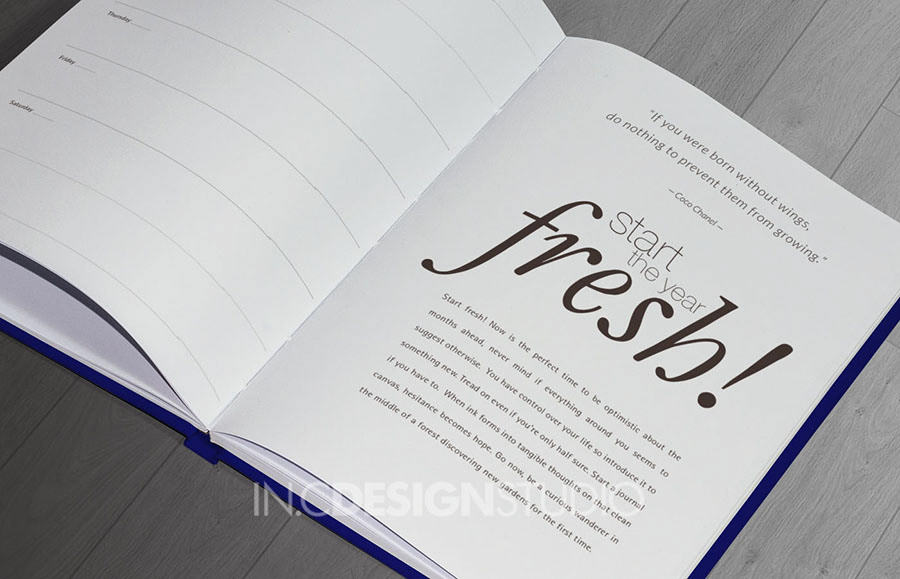 Thursday
Friday
Saturday
"If you were born without wings,
do nothing to prevent them from growing."
— Coco Chanel —
start
the year
fresh!
Start fresh! Now is the perfect time to be optimistic about the
months ahead, never mind if everything around you seems to
suggest otherwise. You have control over your life so introduce it to
something new. Tread on even if you're only half sure. Start a journal
if you have to. When ink forms into tangible thoughts on that clean
canvas, hesitance becomes hope. Go now, be a curious wanderer in
the middle of a forest discovering new gardens for the first time.
IN.CDESIGNSTUDIO